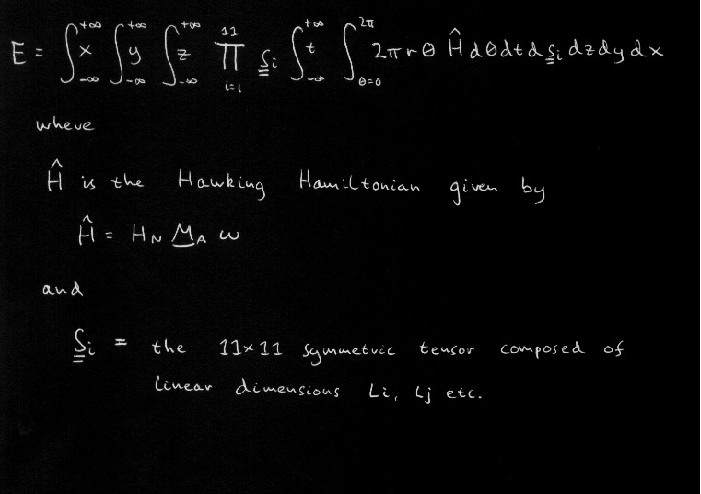 E = ∫_{-∞}^{+∞} x ∫_{-∞}^{+∞} y ∫_{-∞}^{+∞} z ∏_{i=1}^{11} S̳i ∫_{-∞}^{+∞} t ∫_{θ=0}^{2π} 2πrθ Ĥ dθdt dS̳i dzdydx
where
Ĥ is the Hawking Hamiltonian given by
Ĥ = H_N M̲_A ω
and
S̳i = the 11×11 symmetric tensor composed of
linear dimensions Li, Lj etc.